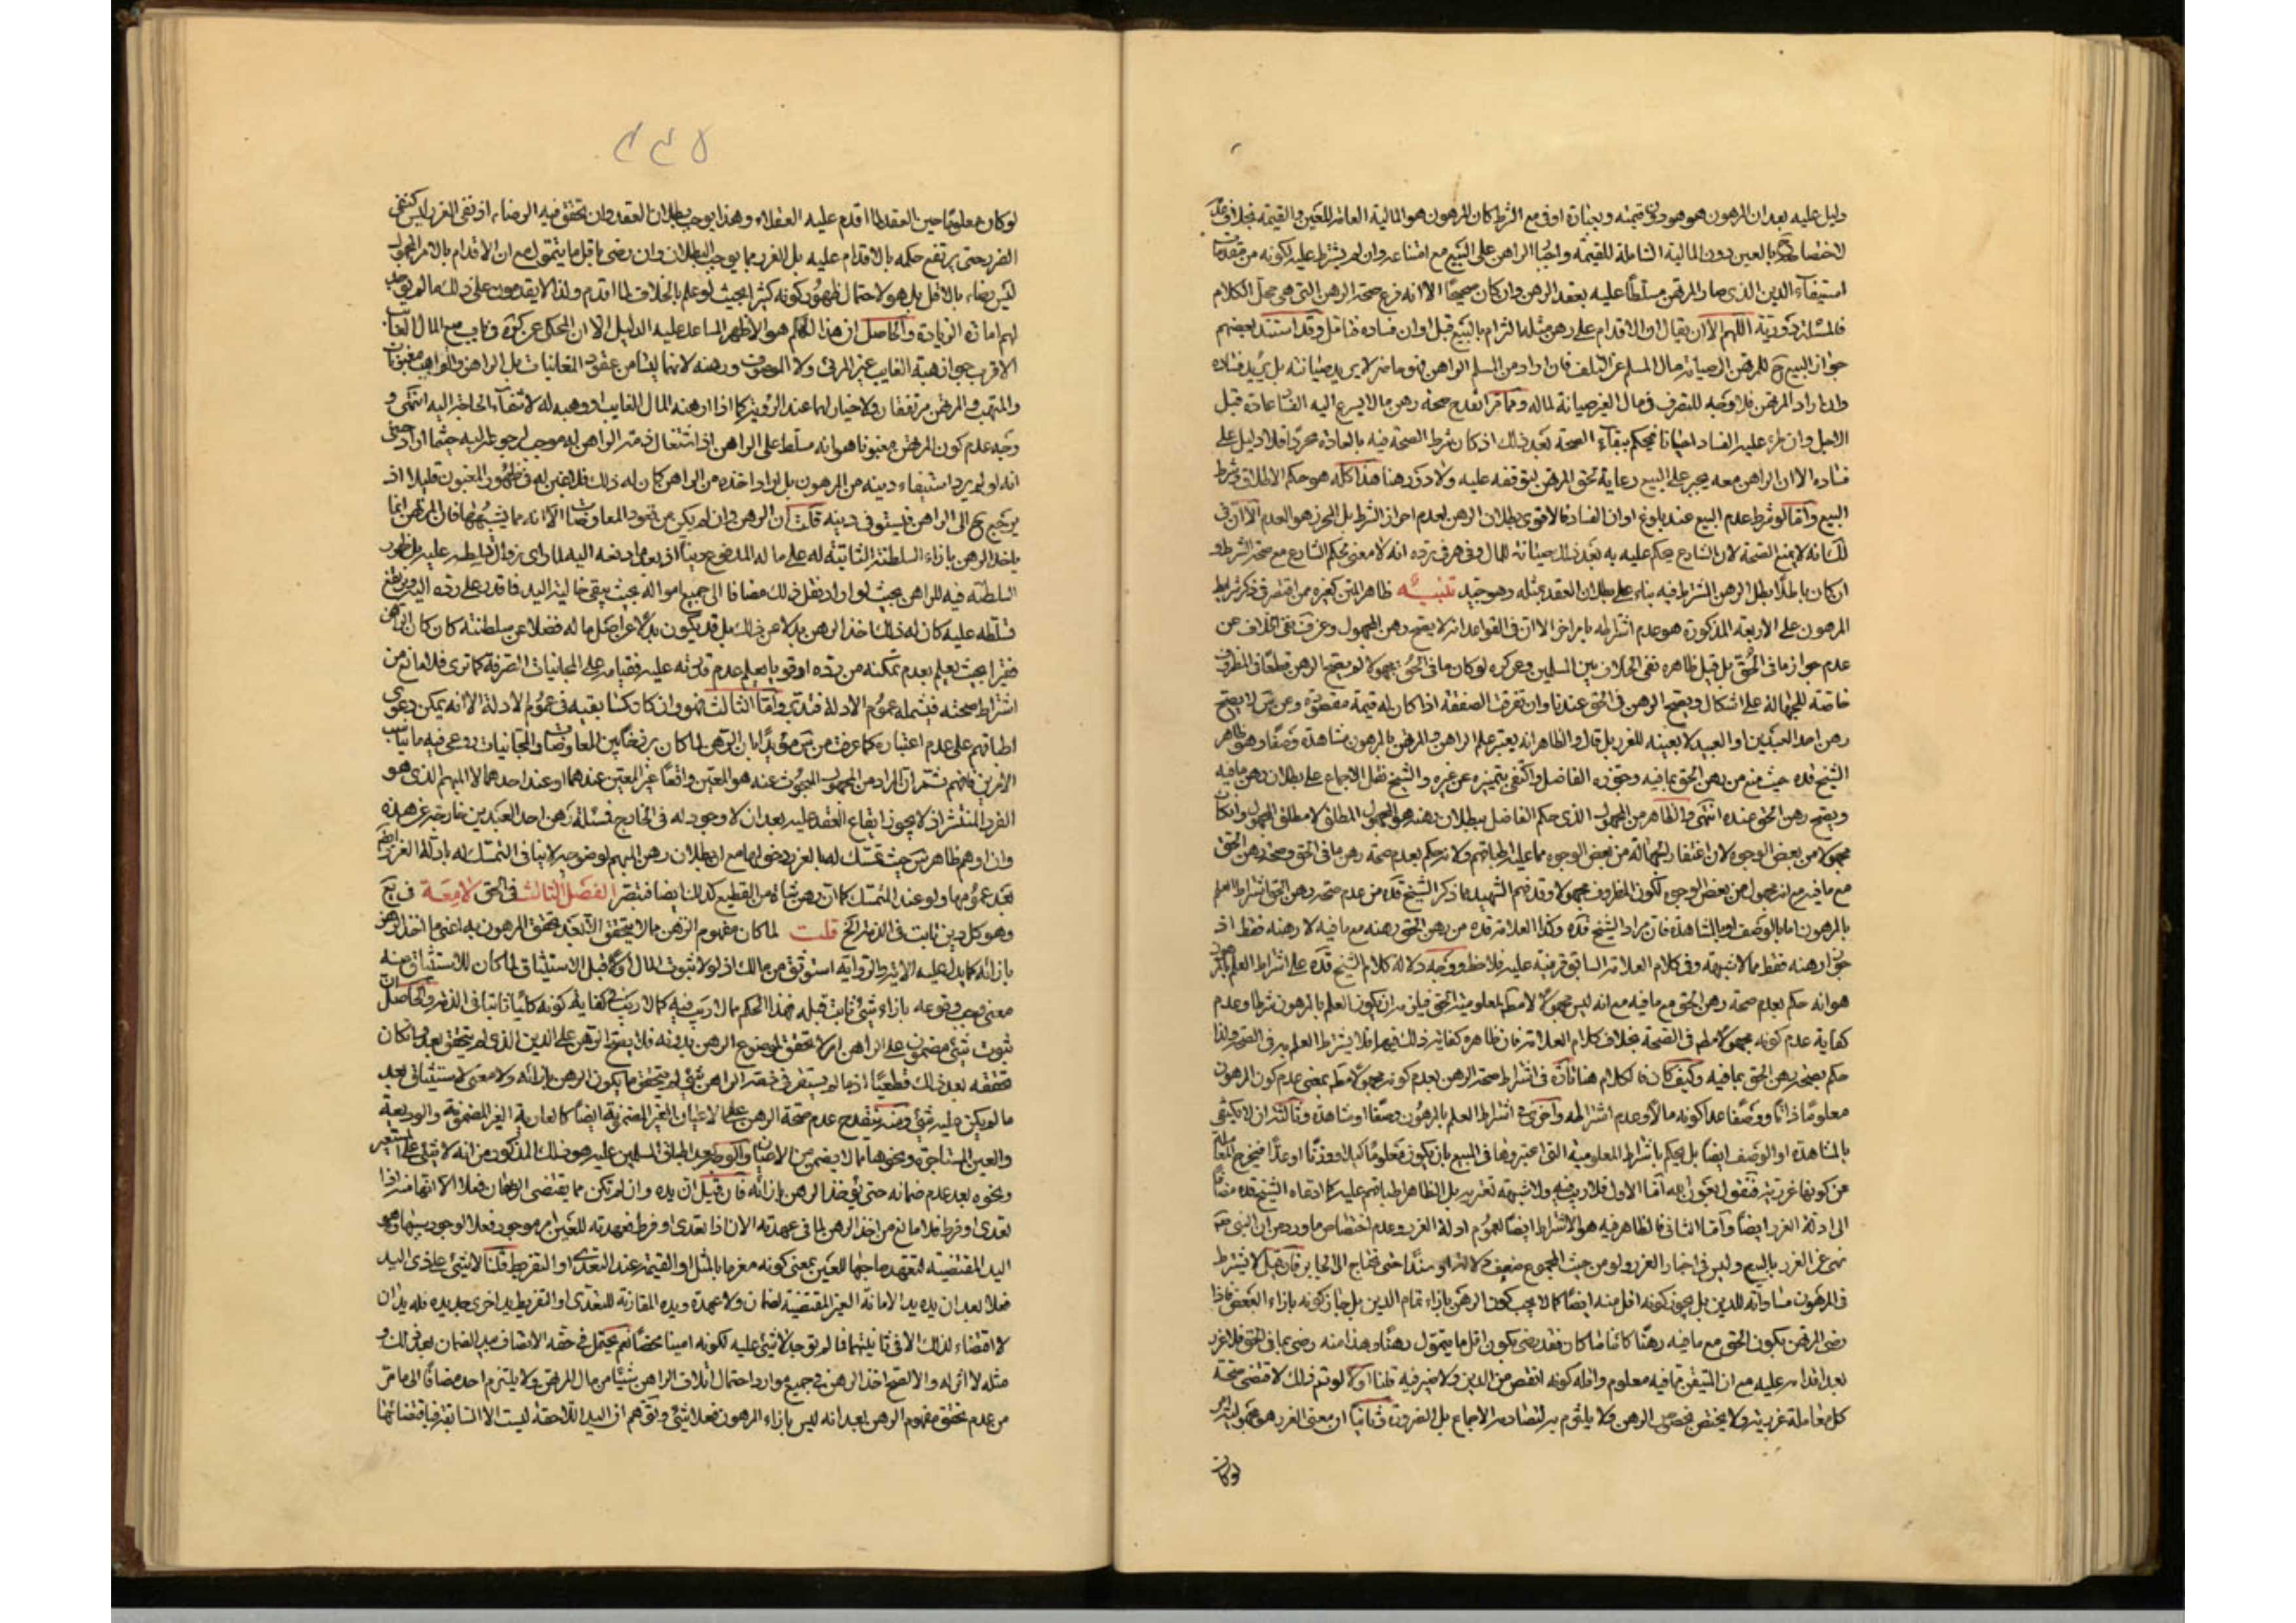 دليل عليه بعد ان المرهون هو هو دون قيمته وبعبارة اوفى مع الشرط كان المرهون هو المالية العامة للعين والقيمة بخلاف
لاختصاصه بالعين دون المالية الشاملة للقيمة واجبار الراهن على البيع مع امتناعه وان لم يشترط عليه لكونه من مقدمات
استيفاء الدين الذي صار المرتهن مسلطا عليه بعقد الرهن وان كان صحيحا الا انه فرع صحة الرهن التي هي محل الكلام
فالمسئلة دورية اللهم الا ان يقال ان الاقدام على رهن مثله التزام بالبيع قبل اوان فساده فتامل وقد استند بعضهم
جواز البيع ح للمرتهن الى صيانة مال المسلم عن التلف فان اراد من المسلم الراهن فهو حاضر لا يريد صيانته بل يريد فساده
وان اراد المرتهن فلا وجه للتصرف في مال الغير صيانة لماله ومما مر انقدح صحة رهن ما لا يسرع اليه الفساد عادة قبل
الاجل وان طرء عليه الفساد احيانا فيحكم ببقاء الصحة بعد ذلك اذ كان شرط الصحة فيه بالعادة محرزا فلا دليل على
فساده الا ان الراهن معه يجبر على البيع رعاية لحق المرتهن لتوقفه عليه ولا دور هنا هذا كله هو حكم الاطلاق وشرط
البيع واما لو شرط عدم البيع عند بلوغ اوان الفساد فالاقوى بطلان الرهن لعدم احراز الشرط بل المحرز هو العدم الا ان في
لك انه لا يمنع الصحة لان الشارع يحكم عليه به بعد ذلك صيانة للمال وفي هرفى برده انه لا معنى لحكم الشارع مع صحة الشرط و
ان كان باطلا بطل الرهن المشترط فيه بناء على بطلان العقد بمثله وهو جيد تنبيه ظاهر المتن كغيره ممن اقتصر في ذكر شرايط
المرهون على الاربعة المذكورة هو عدم اشتراطه بامر اخر الا ان في القواعد انه لا يصح رهن المجهول وعن ف نفى الخلاف عن
عدم جواز ما في الحق بل قيل ظاهره نفى الخلاف بين المسلمين وعن كره لو كان ما في الحق مجهولا لم يصح الرهن قطعا في المظروف
خاصة للجهالة على اشكال ويصح الرهن في الحق عندنا وان تفرقت الصفقة اذا كان له قيمة مقصودة وعن س لا يصح
رهن احد العبدين او العبيد لا بعينه للغرر بل قال والظاهر انه يعتبر علم الراهن والمرتهن بالمرهون مشاهدة وصفا وهو ظاهر
الشيخ قده حيث منع من رهن الحق بما فيه وجوزه الفاضل واكتفى بتميزه عن غيره والشيخ نقل الاجماع على بطلان رهن ما فيه
ويصح رهن الحق عنده انتهى والظاهر من المجهول الذي حكم الفاضل ببطلان رهنه هو المجهول المطلق لا مطلق المجهول وان كان
مجهولا من بعض الوجوه لان اغتفار الجهالة من بعض الوجوه مما عليه اطباقهم ولا نه حكم بعدم صحة رهن ما في الحق وصحة رهن الحق
مع ما فيه مع انه مجهول من بعض الوجوه لكون المظروف مجهولا وقد فهم الشهيد مما ذكر الشيخ قده من عدم صحة رهن الحق اشتراط العلم
بالمرهون اما بالوصف او بالمشاهدة فان مراد الشيخ قده وكذا العلامة قده من رهن الحق رهنه مع ما فيه لا رهنه فقط اذ
جواز رهنه فقط مما لا شبهة وفي كلام العلامة السابق قرينة عليه فلاحظ ووجه دلالة كلام الشيخ قده على اشتراط العلم بالمرهون
هو انه حكم بعدم صحة رهن الحق مع ما فيه مع انه ليس مجهولا مطلقا لمعلومية الحق فيلزم ان يكون العلم بالمرهون شرطا وعدم
كفاية عدم كونه مجهولا مطلقا في الصحة بخلاف كلام العلامة فان ظاهره كفاية ذلك فيها فلا يشترط العلم به في الصحة ولذا
حكم بصحة رهن الحق بما فيه وكيف كان فالكلام هنا تارة في اشتراط صحة الرهن بعدم كونه مجهولا مطلقا بمعنى عدم كون المرهون
معلوما ذاتا ووصفا عدا كونه مالا وعدم اشتراطه واخرى في اشتراط العلم بالمرهون وصفا او مشاهدة وثالثة ان لا يكتفى
بالمشاهدة او الوصف ايضا بل يحكم باشتراط المعلومية التي اعتبروها في المبيع بان يكون معلوما كيلا او وزنا او عدا فيخرج المعاملة
عن كونها غررية فنقول بعون الله اما الاول فلا ريب فيه ولا شبهة تعتريه بل الظاهر اطباقهم عليه كما ادعاه الشيخ قده مضافا
الى ادلة الغرر ايضا واما الثاني فالظاهر فيه هو الاشتراط ايضا لعموم ادلة الغرر وعدم اختصاص ما ورد من ان النبي ص
نهى عن الغرر بالبيع وليس في اخبار الغرر ولو من حيث المجموع ضعف دلالة او سندا حتى تحتاج الى الجابر فان قيل لا يشترط
في المرهون مساواته للدين بل يجوز كونه اقل منه ايضا كما لا يجب كون الرهن بازاء تمام الدين بل جاز كونه بازاء البعض فاذا
رضى المرتهن بكون الحق مع ما فيه رهنا كائنا ما كان فقد رضى بكون اقل ما يتمول رهنا وهذا منه رضى بما في الحق فلا غرر
بعد اقدامه عليه مع ان المتيقن مما فيه معلوم واقله كونه انقص من الدين ولا ضير فيه قلنا اولا لو تم ذلك لاقتضى صحة
كل معاملة غررية ولا يختص بخصوص الرهن ولا يلتزم به لتصادمه الاجماع بل الضرورة وثانيا ان معنى الغرر هو مجهولية امر
لو كان
لو كان معلوما حين العقد لما اقدم عليه العقلاء وهذا يوجب بطلان العقد وان تحقق فيه الرضاء اذ نفى الغرر ليس كنفى
الضرر حتى يرتفع حكمه بالاقدام عليه بل الغرر مما يوجب البطلان وان رضى باقل ما يتمول مع ان الاقدام بالامر المجهول
ليس رضاء بالاقل بل هو لاحتمال ظهور كونه كثيرا بحيث لو علم بالخلاف لما اقدم ولذا لا يقدمون على ذلك ما لم يوجد
لهم امارة الزيادة والحاصل ان هذا الحكم هو الاظهر المساعد عليه الدليل الا ان المحكى عن كره في باب بيع المال الغائب
الاقرب جواز هبة الغايب غير المرئى ولا الموصوف ورهنه لانهما ليسا من عقود المغابنات بل الراهن والواهب مغبونان
والمتهب والمرتهن مرتفقان ولا خيار لهما عند الرؤية كما اذا ارهنه المال الغايب او وهبه له لانتفاء الحاجة اليه انتهى و
وجه عدم كون المرتهن مغبونا هو انه مسلط على الراهن اذ اشتغال ذمة الراهن له موجب لرجوعه اليه حيثما اراد حتى
انه لو لم يرد استيفاء دينه من المرهون بل اراد اخذه من الراهن كان له ذلك فلا غبن له في ظهور المغبون قليلا اذ
يرجع ح الى الراهن فيستوفى دينه قلت ان الرهن وان لم يكن من عقود المعاوضات الا انه مما يشبهها فان المرتهن انما
ياخذ الرهن بازاء السلطنة الثابتة له على ماله المدفوع دينا
السلطنة فيه للراهن بحيث لو اراد نقل ذلك مضافا الى جميع امواله بحيث يبقى خالية اليد فاقد على رده اليه
تسلطه عليه كان له ذلك اخذ الرهن بدلا عن ذلك بل قد يكون بدلا عن اصل ماله فضلا عن سلطنته كان كان الراهن
فقيرا بحيث يعلم بعدم تمكنه من رده او قويا يعلم عدم قدرته عليه فقياسه على المجانيات الصرفة كما ترى فلا مانع من
اشتراط صحته فيشمله عموم الادلة فتدبر واما الثالث فهو وان كان كسابقيه في عموم الادلة الا انه يمكن دعوى
اطباقهم على عدم اعتباره كما عرفت من س مؤيدا بان الرهن لما كان برزخا بين المعاوضات والمجانيات روعى فيه ما يناسب
الامرين فافهم ثم ان المراد من المجهول المبحوث عنه هو المعين واقعا غير المعين عندهما او عند احدهما لا المبهم الذي هو
الفرد المنتشر اذ لا يجوز ايقاع العقد عليه بعد ان لا وجود له في الخارج فمسئلة رهن احد العبدين خارجة عن هذه
وان اوهم ظاهر س حيث تمسك لها بالغرر دخولها مع ان بطلان رهن المبهم لوضوحه لا ينافى التمسك له بادلة الغرر
بعد عمومها ولو عند المتمسك كما ان رهن شاة من القطيع كذلك ايضا فتبصر الفصل الثالث في الحق لامعة في يع
وهو كل دين ثابت في الذمة الخ قلت لما كان مفهوم الرهن مما لا يتحقق الا بعد تحقق المرهون به اعنى ما اخذ الرهن
بازائه كما يدل عليه الاية والرواية استوثق من مالك اذ لولا ثبوت المال اولا قبل الاستيثاق لما كان للاستيثاق منه
معنى وجب وقوعه بازاء شئ ثابت قبله فهذا الحكم مما لا ريب فيه كما لا ريب في كفاية كونه كليا ثابتا في الذمة والحاصل ان
ثبوت شئ مضمون على الراهن امر لا يتحقق موضوع الرهن بدونه فلا يصح الرهن على الدين الذي لم يتحقق بعد وان كان
تحققه بعد ذلك قطعيا اذ ما لم يستقر في ذمة الراهن شئ لم يتحقق ما يكون الرهن بازائه ولا معنى لاستيثاق بعد
ما لم يكن عليه شئ ومنه ينقدح عدم صحة الرهن على الاعيان الغير المضمونة ايضا كالعارية الغير المضمونة والوديعة
والعين المستاجرة ونحوها مما لا يضمن من الاعيان والوجه بعد اطباق المسلمين عليه هو ذلك المذكور من انه لا شئ على المستعير
ونحوه بعد عدم ضمانه حتى يؤخذ الرهن بازائه فان قيل ان يده وان لم تكن مما يقتضى الضمان فعلا الا انها منه اذا
تعدى او فرط فلا مانع من اخذ الرهن لما في عهدته الان اذا تعدى او فرط فعهدته للعين امر موجود فعلا لوجود سببها وهو
اليد المقتضية لتعهد صاحبها للعين بمعنى كونه مغرما بالمثل او القيمة عند التعدى او التفريط قلنا لا شئ على ذى اليد
فعلا بعد ان يده يد الامانة الغير المقتضية لضمان ولا عهدة ويده المقارنة للتعدى او التفريط يد اخرى جديدة فله يدان
لا اقتضاء لذلك الا في ثانيتهما فما لم توجد لا شئ عليه لكونه امينا محضا نعم يحتمل في حقه الاتصاف بيد الضمان بعد ذلك و
مثله لا اثر له والا لصح اخذ الرهن في جميع موارد احتمال اتلاف الراهن شيئا من مال المرتهن ولا يلتزم احد مضافا الى ما مر
من عدم تحقق مفهوم الرهن بعد انه ليس بازاء المرهون فعلا شئ وتوهم ان اليد اللاحقة ليست الا السابقة فباقتضائها